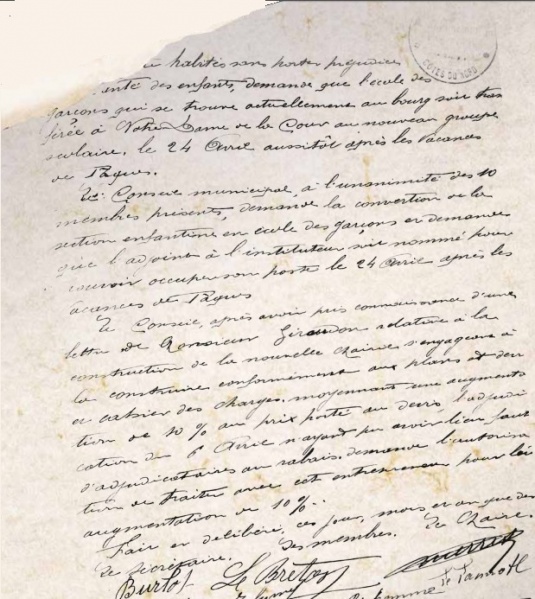 habités sans porter préjudice
des enfants, demande que l'école des
garçons qui se trouve actuellement au bourg soit trans
férée à Notre Dame de la Cour au nouveau groupe
scolaire, le 24 Avril aussitôt après les vacances
de Pâques.
Le Conseil municipal à l'unanimité des 10
membres présents, demande la convertion de la
section enfantine en école des garçons et demande
que l'adjoint à l'instituteur soit nommé pour
pouvoir occuper son poste le 24 Avril après les
vacances de Pâques
Le Conseil, après avoir pris connaissance d'une
lettre de Monsieur Giraudon relative à la
construction de la nouvelle Mairie s'engageant à
la construire conformément aux plans et devis
et cahier des charges, moyennant une augmenta
tion de 10 % au prix porté au devis, l'adjudi
cation du 6 Avril n'ayant pu avoir lieu faute
d'adjudicataires au rabais, demande l'autorisa
tion de traiter avec cet entrepreneur pour les
augmentation de 10 %.
Fait et délibéré, ces jour, mois et an que des
Le Secrétaire. Les membres. Le Maire.
Burlot Le Breton
CÔTES DU NORD